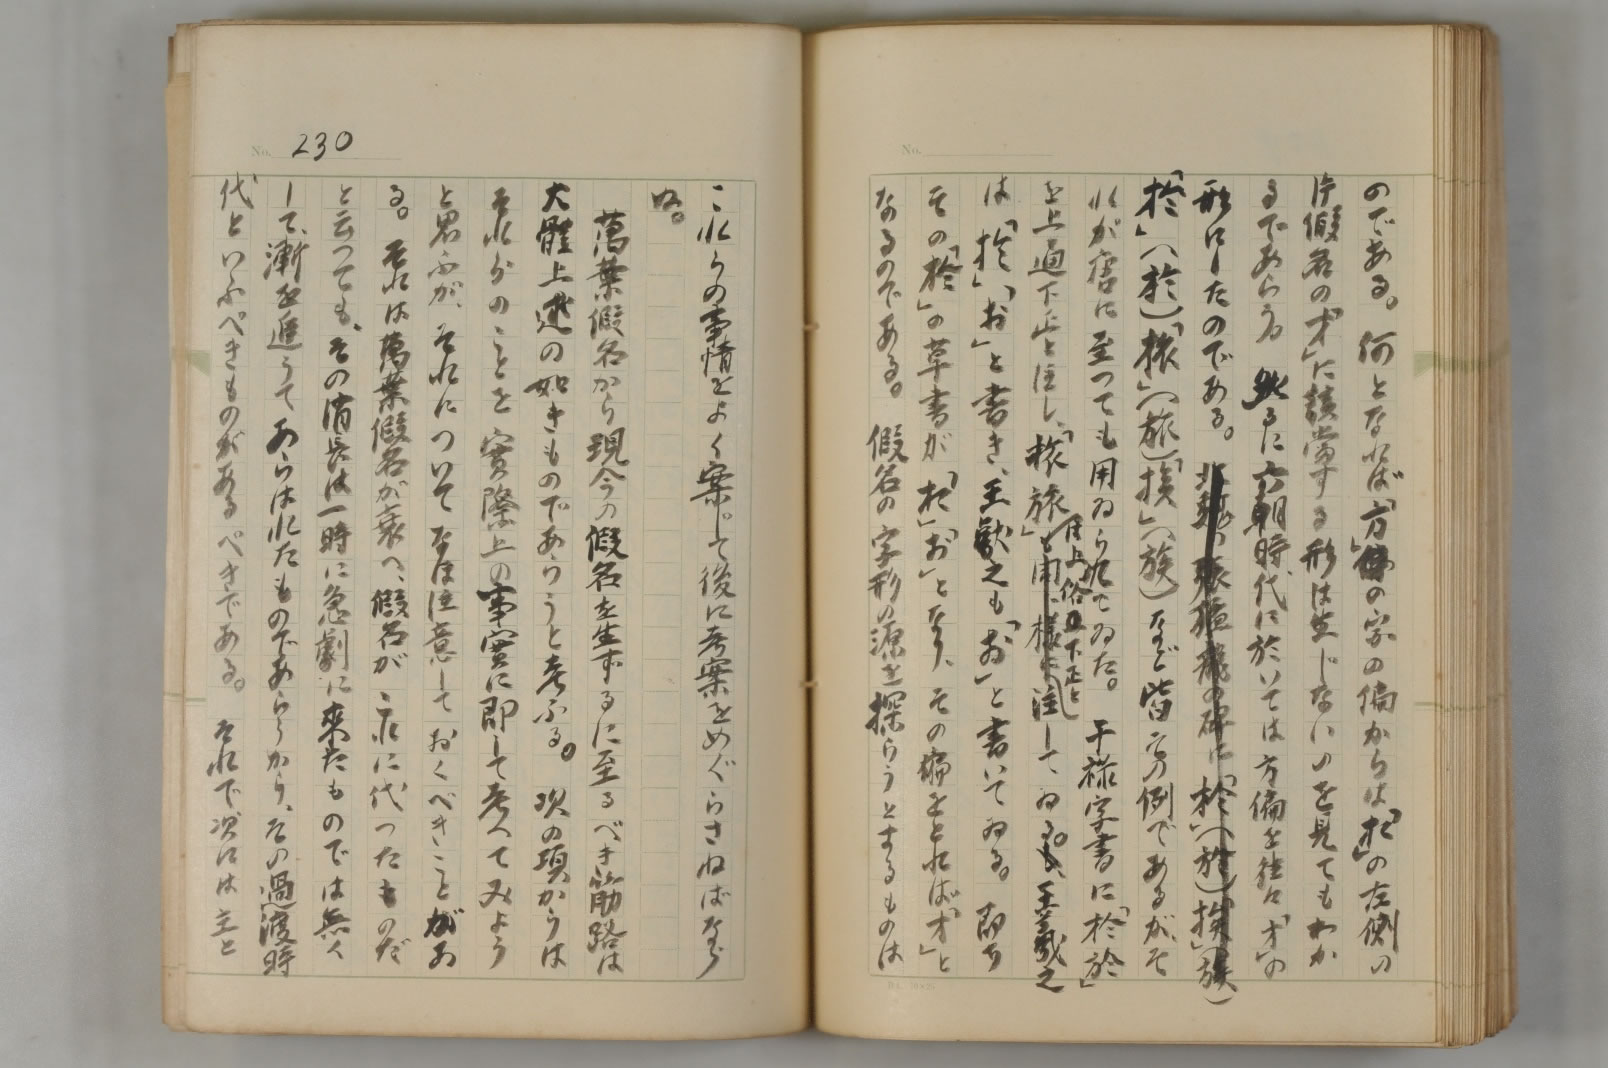 のである。何となれば「方」の字の偏からは「オ」の左側の
片假名の「オ」に該當する形は生じないのを見てもわか
るであらう。然るに六朝時代に於いては方偏を往々「才」の
形にしたのである。
「扵」(於)「挔」(旅)「挨」(族)など皆この例であるが、そ
れが唐に至つても用ゐられてゐた。干禄字書に「扵於」
を上通下正と注し、「挔旅」を上俗下正と注してゐる。王羲之
は「扵」、「お」と書き、王獻之も「お」と書いてゐる。即ち
その「扵」の草書が「お」となり、その偏をとれば「オ」と
なるのである。假名の字形の源を探らうとするものは
No.
No. 230
これらの事情をよく案じて後に考案をめぐらさねばなら
ぬ。
萬葉假名から現今の假名を生ずるに至るべき筋路は
大體上述の如きものであらうと考ふる。次の項からは
それらのことを實際上の事實に即して考へてみよう
と思ふが、それについてなほ注意しておくべきことがあ
る。それは萬葉假名が衰へ、假名がこれに代つたものだ
と云つても、その消長は一時に急劇に來たものでは無く
して、漸を追うてあらはれたものであらうから、その過渡時
代といふべきものがあるべきである。それで次には主と